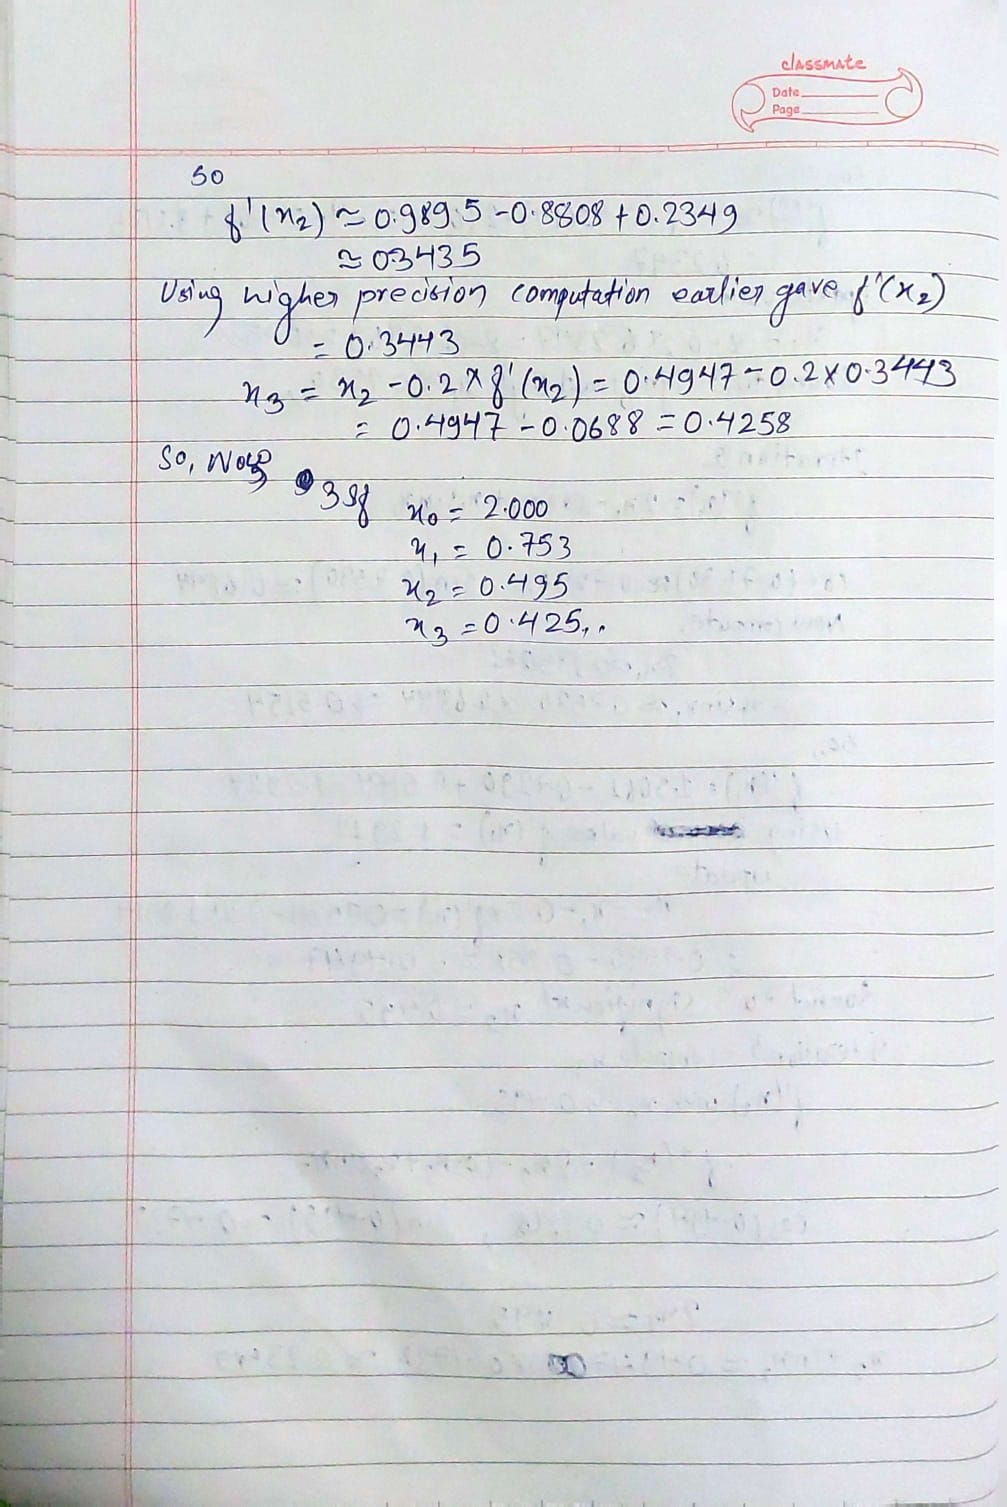 classmate
Date
Page
So
f'(x₂) ≈ 0.9895 - 0.8808 + 0.2349
≈ 03435
Using higher precision computation earlier gave f'(x₂)
= 0.3443
x₃ = x₂ - 0.2 × f'(x₂) = 0.4947 - 0.2 × 0.3443
= 0.4947 - 0.0688 = 0.4258
So, Now
3 sf x₀ = 2.000
x₁ = 0.753
x₂ = 0.495
x₃ = 0.425,.